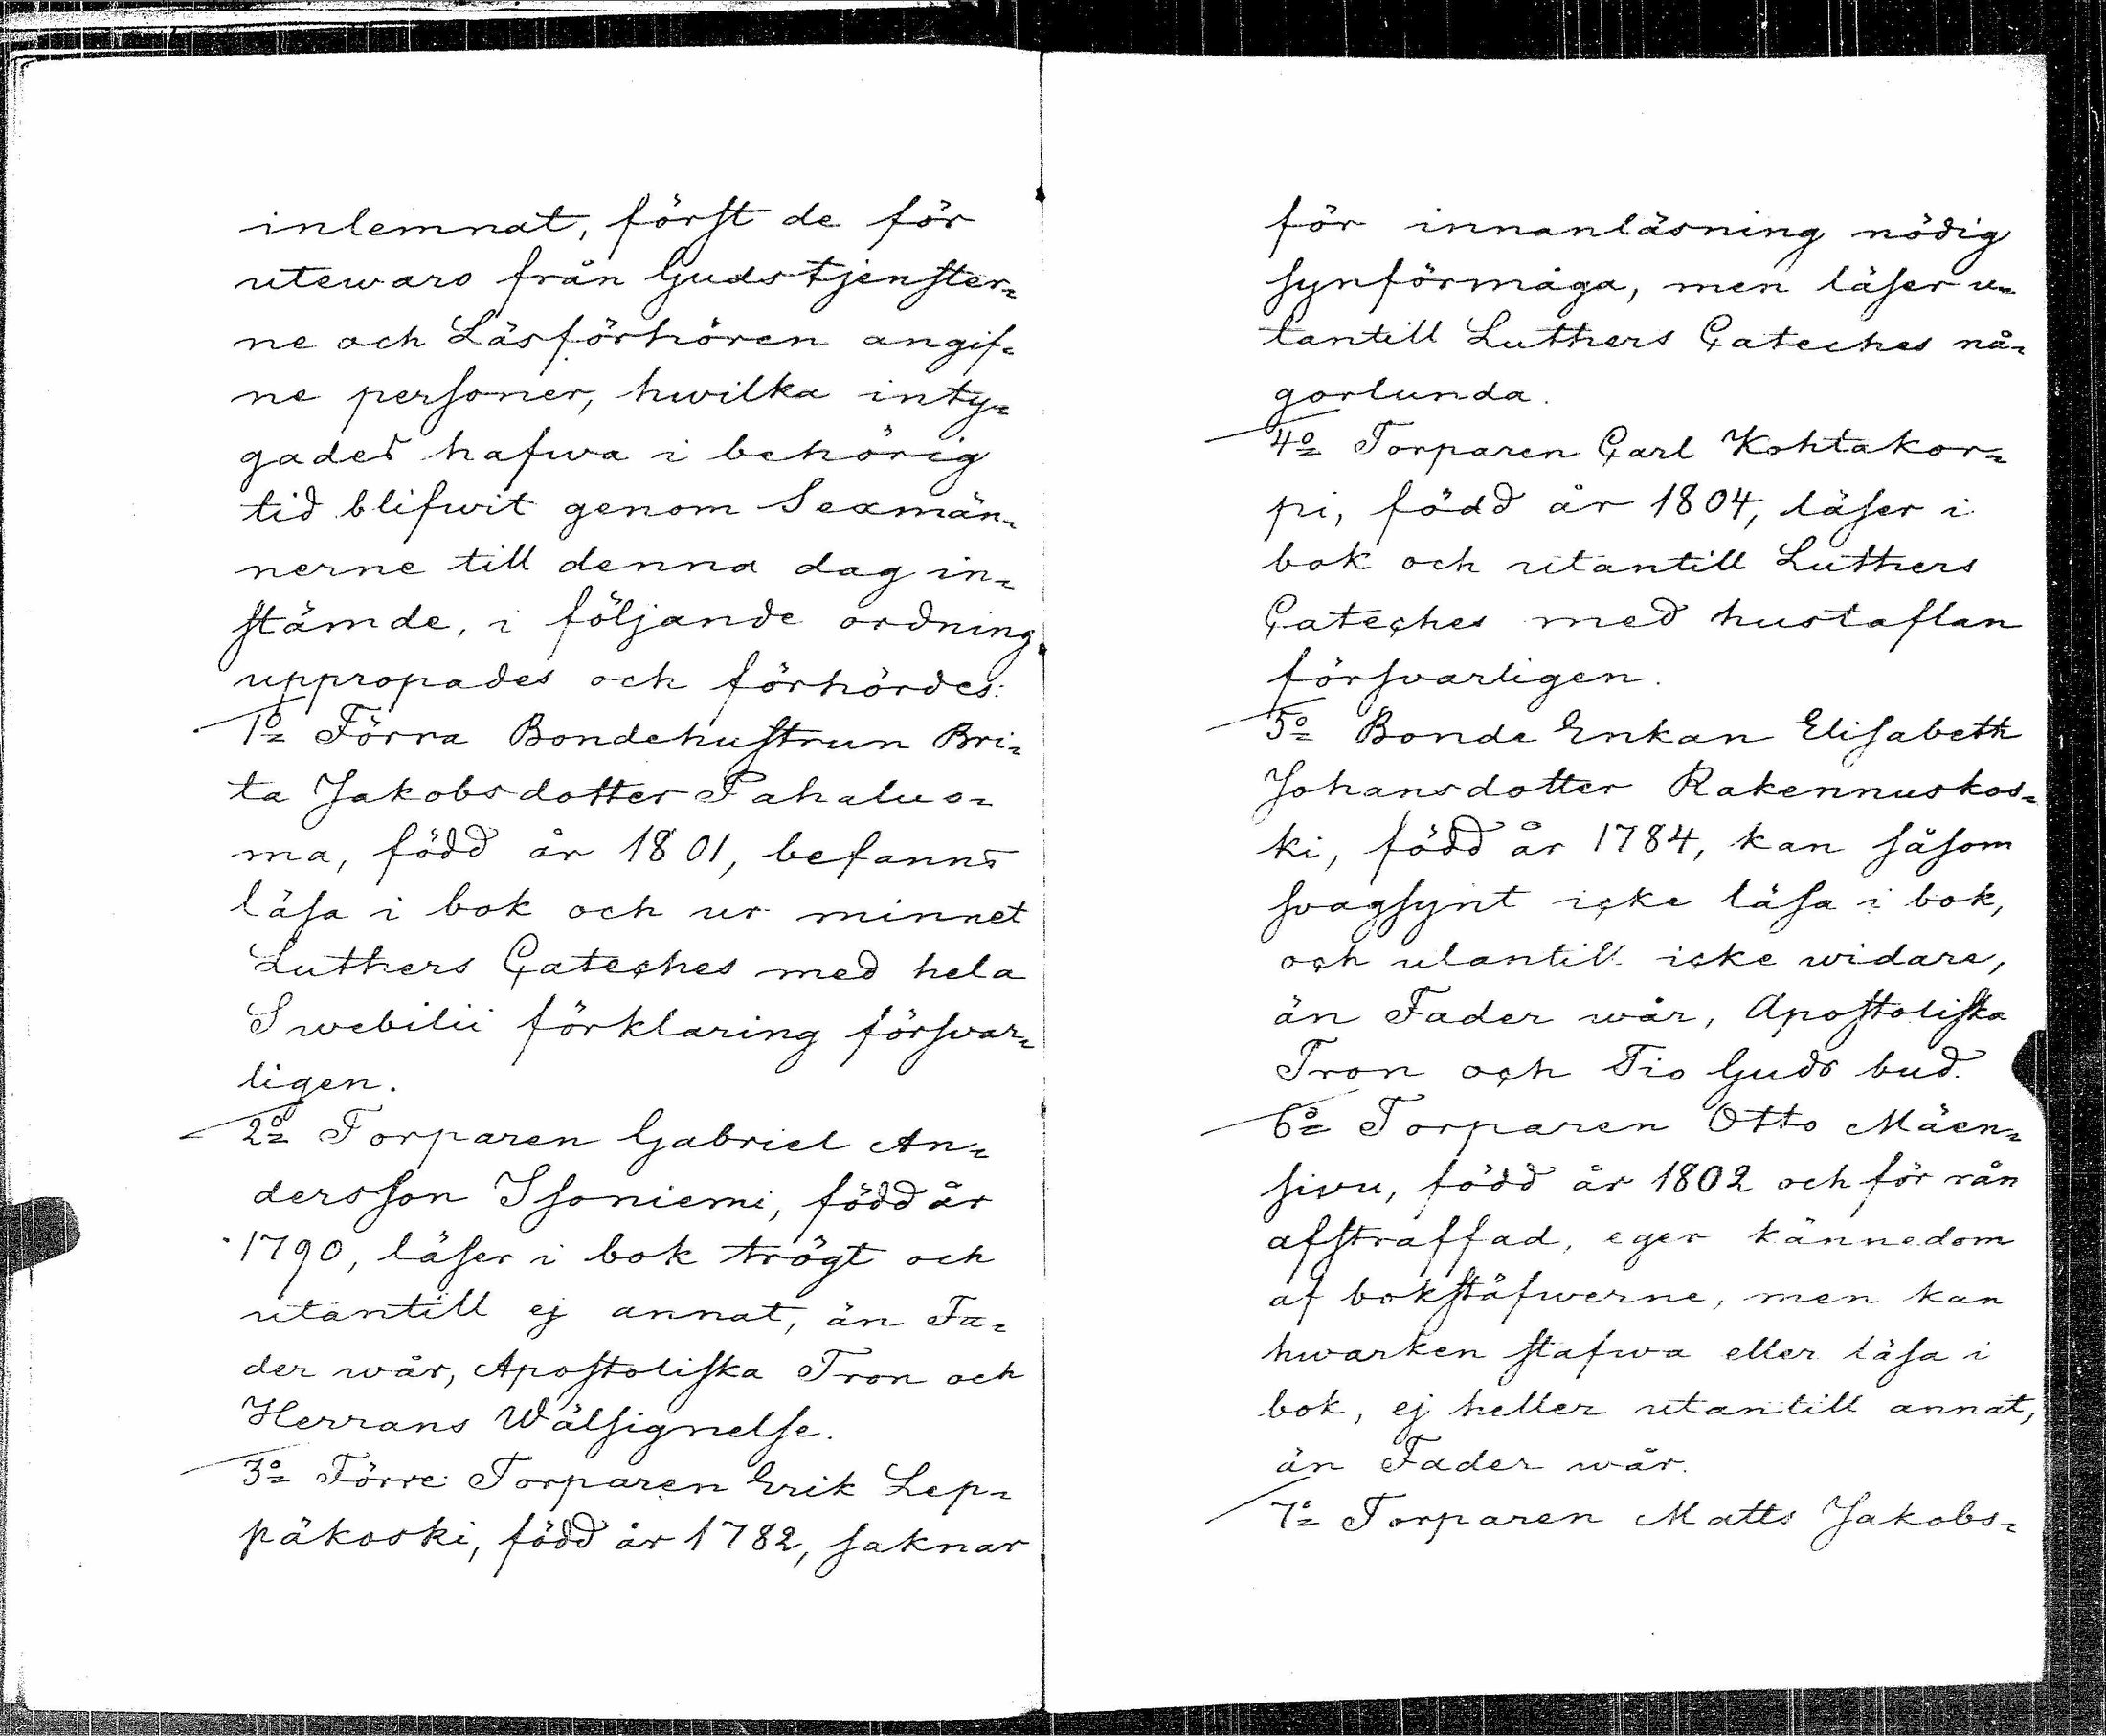 inlemnat, först de för
utewaro från Gudstjenster-
ne och Läsförhören angif-
ne personer, hwilka inty-
gades hafwa i behörig
tid blifwit genom Sexmän-
nerne till denna dag in-
stämde, i följande ordning
uppropades och förhördes:
1o Förra Bondehustrun Bri-
ta Jakobsdotter Pahaluo-
ma, född år 1801, befanns
läsa i bok och ur minnet
Luthers Cateches med hela
Swebilii förklaring försvar-
ligen.
2o Torparen Gabriel An-
dersson Isoniemi, född år
1790, läser i bok trögt och
utantill ej annat, än Fa-
der wår, Apostoliska Tron och
Herrans Wälsignelse.
3o Förre Torparen Erik Lep-
päkoski, född år 1782, saknar
för innanläsning nödig
synförmåga, men läser u-
tantill Luthers Cateches nå-
gorlunda.
4o Torparen Carl Kohtakor-
pi, född år 1804, läser i
bok och utantill Luthers
Cateches med hustaflan
försvarligen.
5o Bonde Enkan Elisabeth
Johansdotter Rakennuskos-
ki, född år 1784, kan såsom
svagsynt icke läsa i bok,
och utantill icke widare,
än Fader wår, Apostoliska
Tron och Tio Guds bud.
6o Torparen Otto Mäen-
sivu, född år 1802 och för rån
afstraffad, eger kännedom
af bokstäfwerne, men kan
hwarken stafwa eller läsa i
bok, ej heller utantill annat,
än Fader wår.
7o Torparen Matts Jakobs-